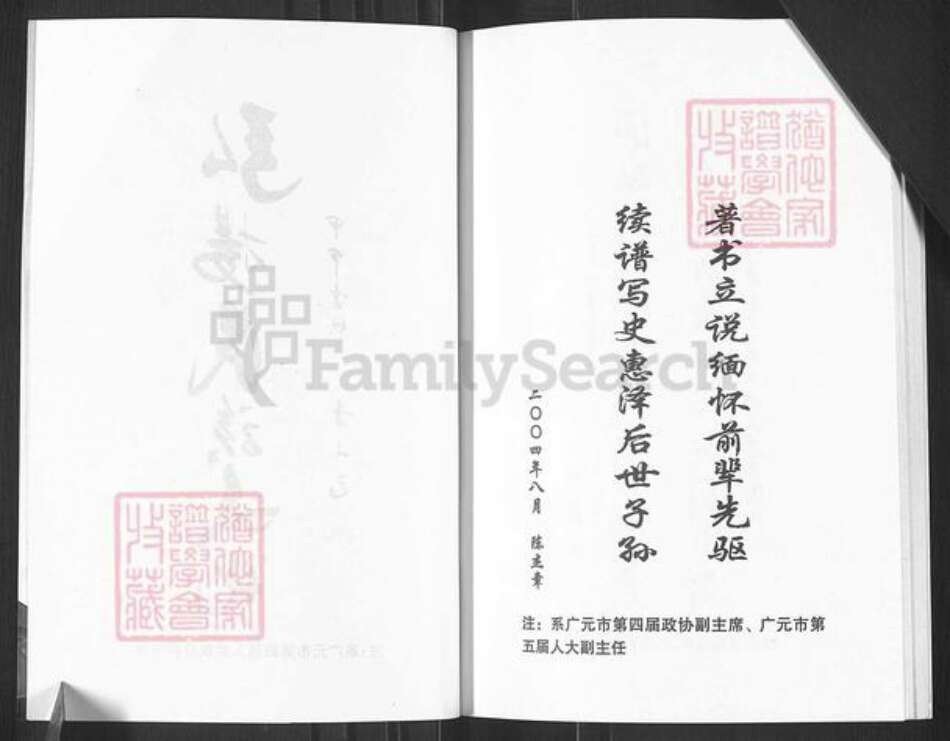 著书立说缅怀前辈先驱
续谱写史惠泽后世子孙
二〇〇四年八月 陈杰章
注：系广元市第四届政协副主席、广元市第
五届人大副主任
FamilySearch